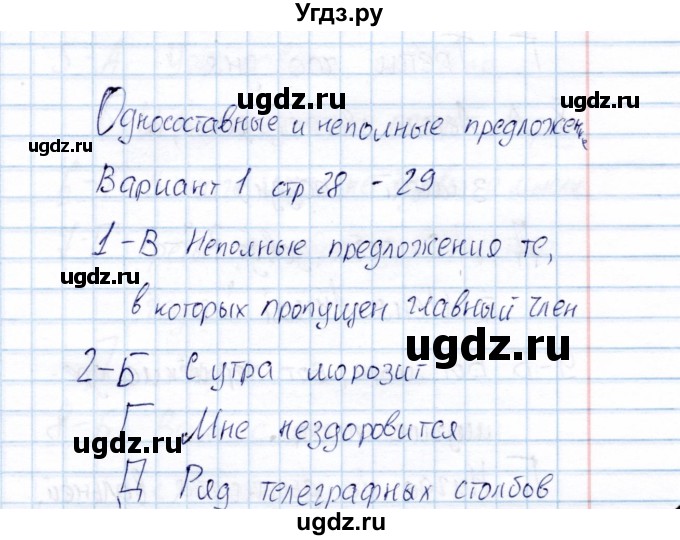 Угдз.ру
ugdz.ru ugdz.ru
Односоставные и неполные предложен
ugdz.ru ugdz.ru
Вариант 1 стр 28 - 29
1-В Неполные предложения те,
ugdz.ru
в которых пропущен главный член
ugdz.ru
2-Б С утра морозит
Г Мне нездоровится
ugdz.ru ugdz.ru
Д Ряд телеграфных столбов
ugdz.ru